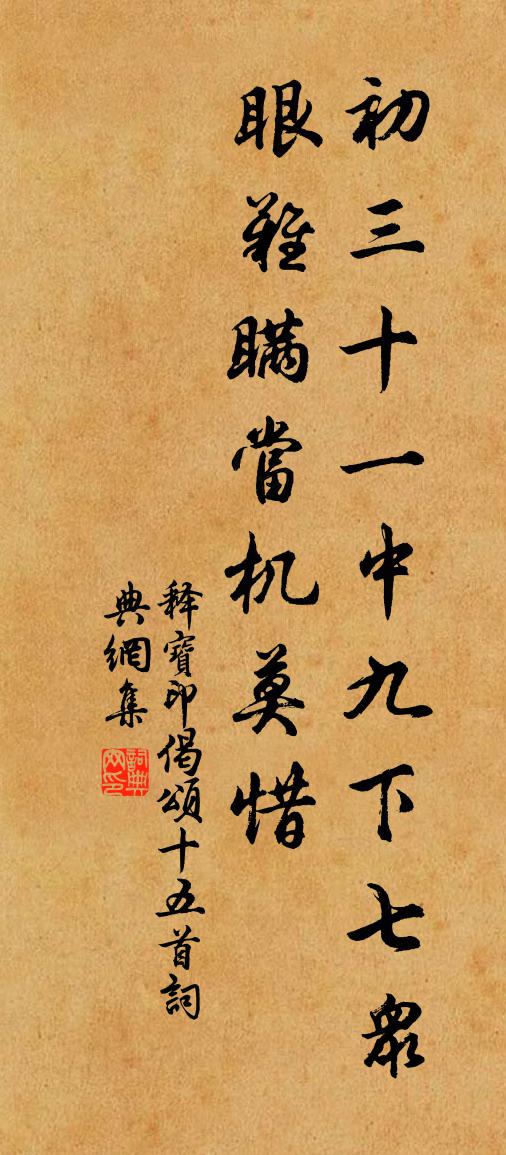 初三十一中九下七衆
眼難瞞當机莫惜
释寶印偈頌十五首詞
典網集
詞典网印